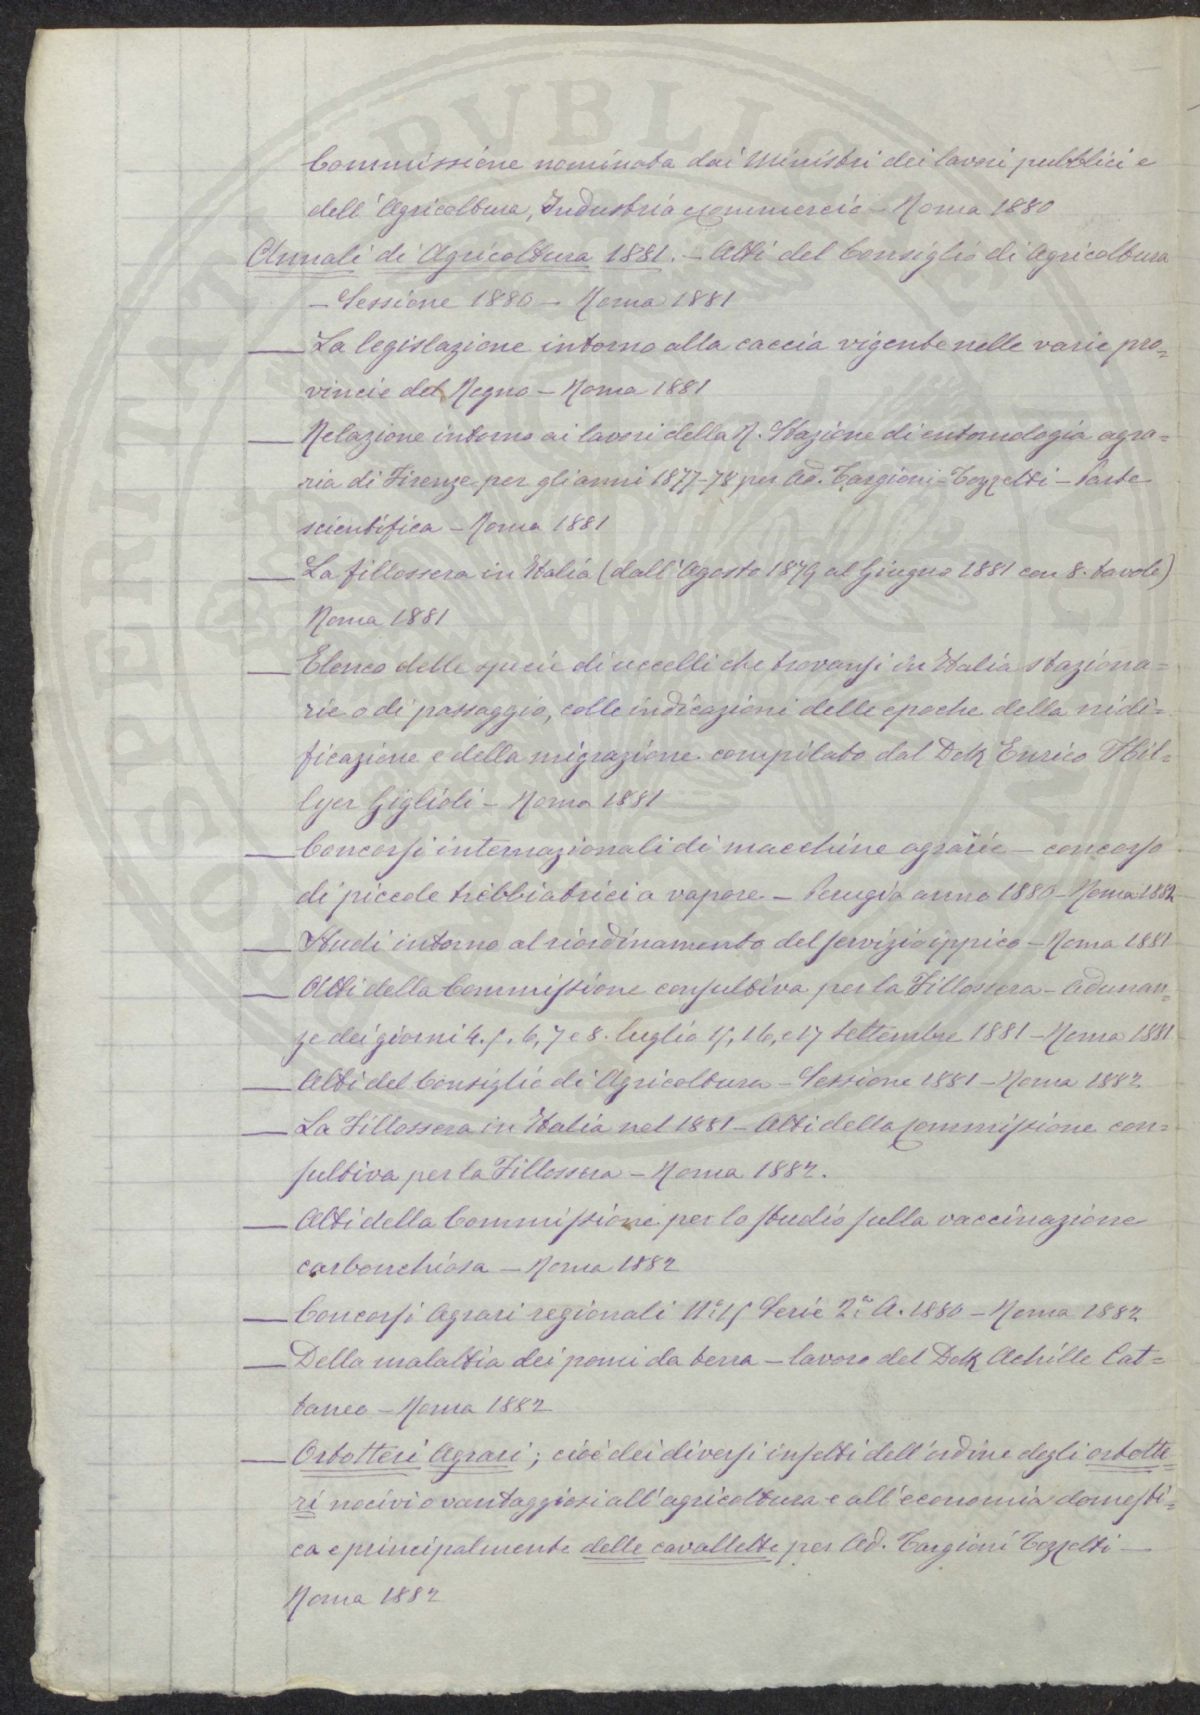 Commissione nominata dai Ministri dei lavori pubblici e
dell'Agricoltura, Industria e commercio – Roma 1880
Annali di Agricoltura 1881. – Atti del Consiglio di Agricoltura
– Sessione 1880 – Roma 1881
— La legislazione intorno alla caccia vigente nelle varie pro=
vincie del Regno – Roma 1881
— Relazione intorno ai lavori della R. Stazione di entomologia agra=
ria di Firenze per gli anni 1877-78 per Ad. Targioni-Tozzetti – Parte
scientifica – Roma 1881
— La fillossera in Italia (dall'Agosto 1879 al Giugno 1881 con 8. tavole)
Roma 1881
— Elenco delle specie di uccelli che trovansi in Italia staziona=
rie o di passaggio, colle indicazioni delle epoche della nidi=
ficazione e della migrazione compilato dal Dott Enrico Hil=
lyer Giglioli – Roma 1881
— Concorsi internazionali di macchine agrarie – concorso
di piccole trebbiatrici a vapore – Perugia anno 1880 – Roma 1882
— Studi intorno al riordinamento del servizio ippico – Roma 1881
— Atti della Commissione consultiva per la Fillossera – Adunan=
ze dei giorni 4. 5. 6, 7 e 8. luglio 15, 16, e 17 Settembre 1881 – Roma 1881
— Atti del Consiglio di Agricoltura – Sessione 1881 – Roma 1882
— La Fillossera in Italia nel 1881 – Atti della Commissione con=
sultiva per la Fillossera – Roma 1882.
— Atti della Commissione per lo studio sulla vaccinazione
carbonchiosa – Roma 1882
— Concorsi Agrari regionali N° 15 Serie 2a A. 1880 – Roma 1882
— Della malattia dei pomi da terra – lavoro del Dott Achille Cat=
taneo – Roma 1882
— Ortotteri Agrari; cioè dei diversi insetti dell'ordine degli ortotte=
ri nocivi o vantaggiosi all'agricoltura e all'economia domesti=
ca e principalmente delle cavallette per Ad. Targioni Tozzetti –
Roma 1882